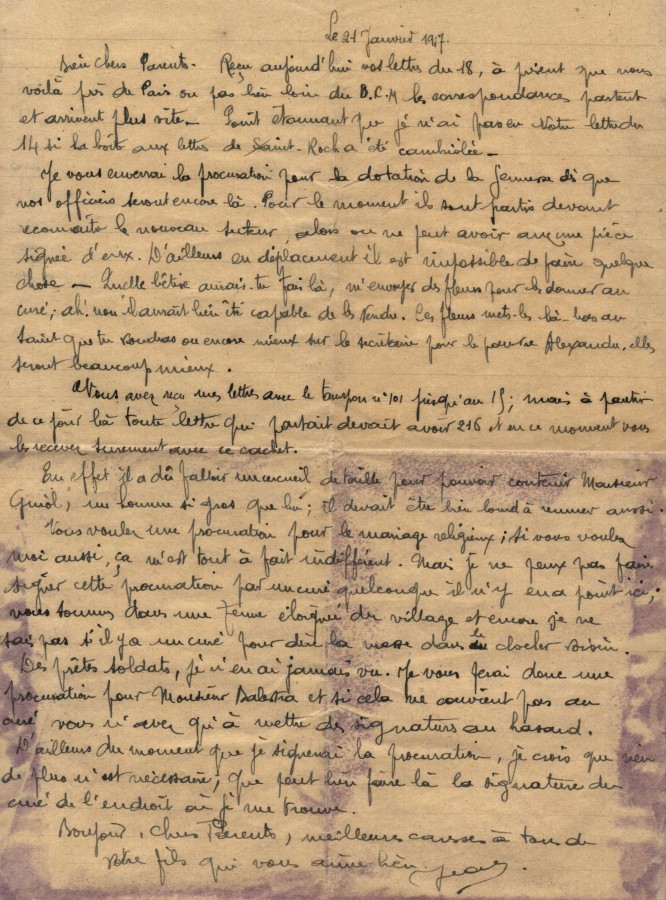 Le 21 Janvier 1917.
Bien chers Parents. Reçu aujourd'hui vos lettres du 18, à présent que nous
voilà près de Paris ou pas bien loin du B.C.M les correspondances partent
et arrivent plus vite. Point étonnant que je n'ai pas eu votre lettre du
14 si la boîte aux lettres de Saint-Roch a été cambriolée -
Je vous enverrai la procuration pour la dotation de la dès que
nos officiers seront encore là. Pour le moment ils sont partis devant
reconnaître le nouveau secteur, alors on ne peut avoir aucune pièce
signée d'eux. D'ailleurs en déplacement il est impossible de faire quelque
chose - Quelle bêtise aurais-tu fais là, m'envoyer des fleurs pour les donner au
curé; ah! non il aurait bien été capable de les vendre. Ces fleurs mets-les là-bas au
Saint que tu voudras ou encore mieux sur le secrétaire pour le pauvre Alexandre, elles
seront beaucoup mieux.
Vous avez reçu mes lettres avec le tampon n° 101 jusqu'au 15; mais à partir
de ce jour là toute lettre qui partait devait avoir 216 et en ce moment vous
les recevez surement avec ce cachet.
En effet il a dû falloir un cercueil de taille pour pouvoir contenir Monsieur
Guiol, un homme si gros que lui; il devait être bien lourd à remuer aussi.
Vous voulez une procuration pour le mariage religieux; si vous voulez
moi aussi, ça m'est tout à fait indifférent. Mais je ne peux pas faire
signer cette procuration par un curé quelconque il n'y en a point ici;
nous sommes dans une ferme éloignée du village et encore je ne
sais pas s'il y a un curé pour dire la messe dans le clocher voisin.
Des prêtes soldats, je n'en ai jamais vu. Je vous ferai donc une
procuration pour Monsieur Balestra et si cela ne convient pas au
curé vous n'avez qu'à mettre des signatures au hasard.
D'ailleurs du moment que je signerai la procuration, je crois que rien
de plus n'est nécessaire; que peut bien faire là la signature du
curé de l'endroit où je me trouve.
Bonjour, chers Parents, meilleures caresses à tous de
votre fils qui vous aime bien. Jean